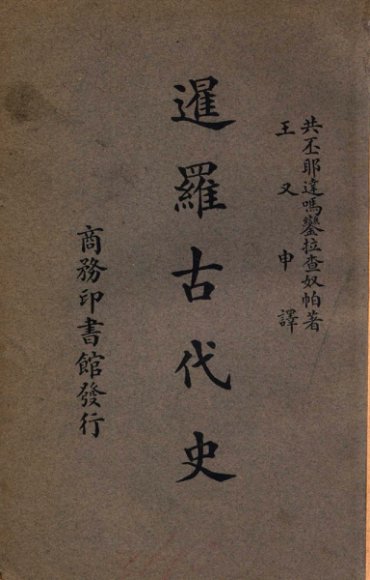 共丕耶達嗎鑾拉查奴帕著
王又申譯
暹羅古代史
商務印書館發行